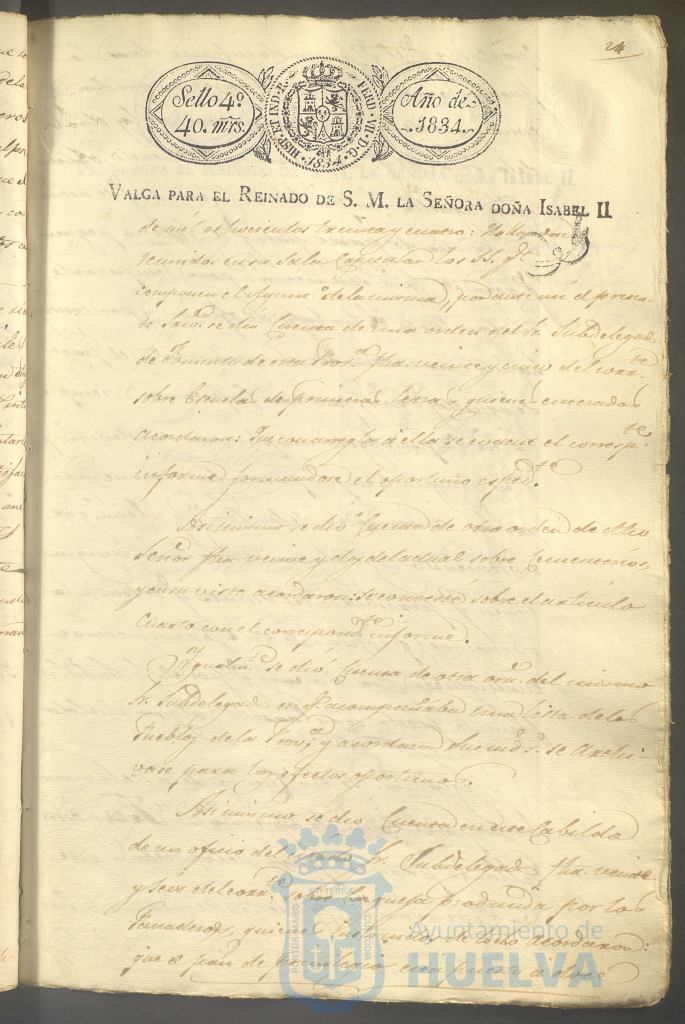 24
Sello 4º
40. mrs.
HISP. ET IND. R. FERD. VII. D. G.
1834
Año de
1834.
VALGA PARA EL REINADO DE S. M. LA SEÑORA DOÑA ISABEL II
de mil ochocientos treinta y cuatro: Hallandose
reunidos en su Sala Capitular los SS. qe.
componen el Ayunto. de la misma, por ante mi el presen-
te Srio. se dio Cuenta de una orden del Sr. Subdelegado
de Fomento de esta Prova. fha. veinte y cinco del corrte.
sobre Escuelas de primeras letras, y quienes enterados
acordaron: Que con arreglo a ella se evacue el correspte.
informe formandose el oportuno espedte.
Asimismo se dió Cuenta de otra orden de dho
Señor fha. veinte y dos del actual sobre Cementerios,
y en su vista acordaron: se conteste sobre el articulo
Cuarto con el correspondte. informe.
Igualmte. se dió Cuenta de otra orn. del mismo
Sr. Subdelegado en qe. acompañaba una lista de los
Pueblos de la Prova. y acordaron Sus mds. se Archi-
vase para los efectos oportunos.
Asimismo se dió Cuenta en este Cabildo
de un oficio del Sr. Subdelegado fha. veinte
y seis del corrte. sobre la queja producida por los
Panaderos, quienes de todo acordaron:
que el pan de
Ayuntamiento de
HUELVA
PORTUS MARIS
ET TERRÆ
CUSTODIA